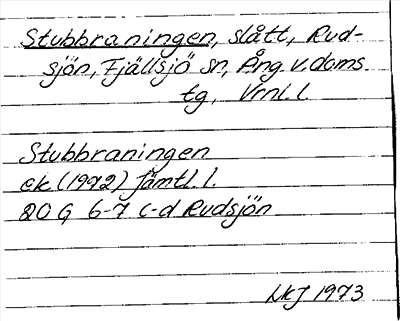 Stubbraningen, slått, Rud-
sjön, Fjällsjö sn, Ång. v. doms.
tg, Vrnl. l.
Stubbraningen
ek. (1972) Jämtl. l.
20 G 6-7 c-d Rudsjön
1973